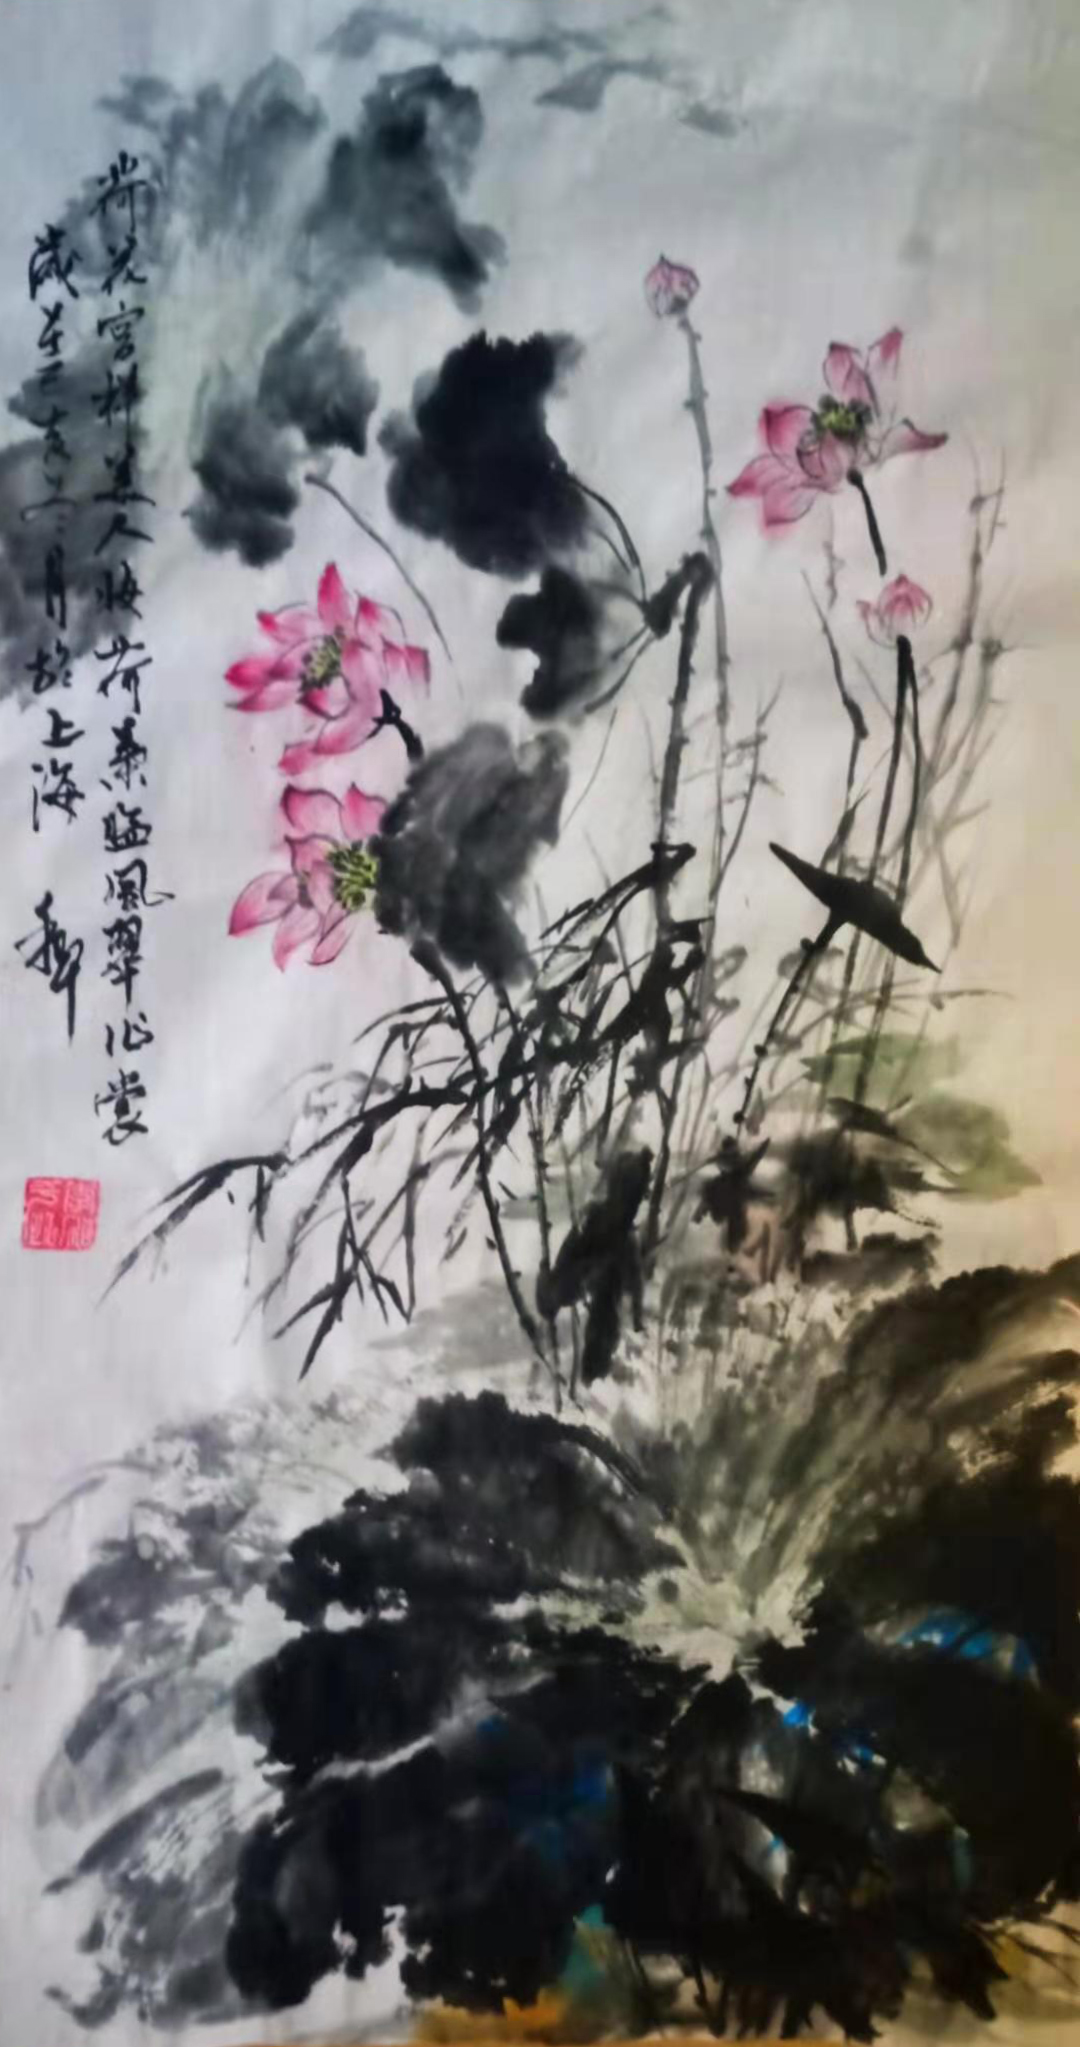 荷花宫样美人妆荷叶临风翠作裳
岁在己亥三月于上海